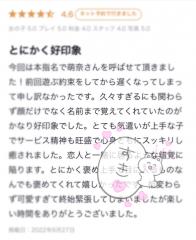 4.6 ネット予約で行きました
女の子 5.0 プレイ 5.0 料金 4.0 スタッフ 4.0 写真 5.0
とにかく好印象
今回は本指名で萌奈さんを呼ばせて頂きまし
た！前回遊ぶ約束をしてから遅くなってしまっ
て申し訳なかったです。久々すぎるにも関わら
ず顔だけでなく名前まで覚えてくれていたのが
かなり好印象でした。とても気遣いが上手な子
でサービス精神も旺盛で心身ともにスッキリし
癒されました。恋人と一緒に
覚に
陥ります。とにかく褒め上手
なの
んでも褒めてくれて嬉し
変わら
ず可愛すぎて終始緊張してしまいましたが楽し
い時間をありがとうございました。
掲載日：2022年9月27日